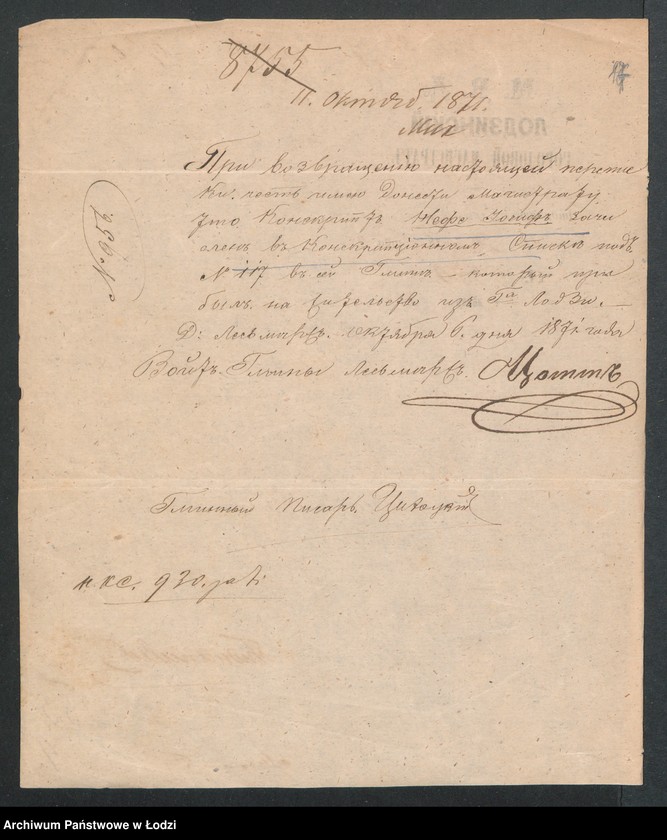 8755
17
11. Октяб. 1871.
При возвращению настоящей перепис
ки. честь имею Донести Магистрату
что Конскриптъ Іосифъ Зачи
сленъ въ Конскрипціонномъ Списке подъ
№ 117 въ сей Гминѣ - который при
былъ на жительство изъ Гда Лодзи. —
Д: Лесьмержъ. Октября 6. дня 1871 года
Войтъ Гмины Лесьмержъ.
№ 950.
Гминный Писарь
н. кс. 930.
Archiwum Państwowe w Łodzi